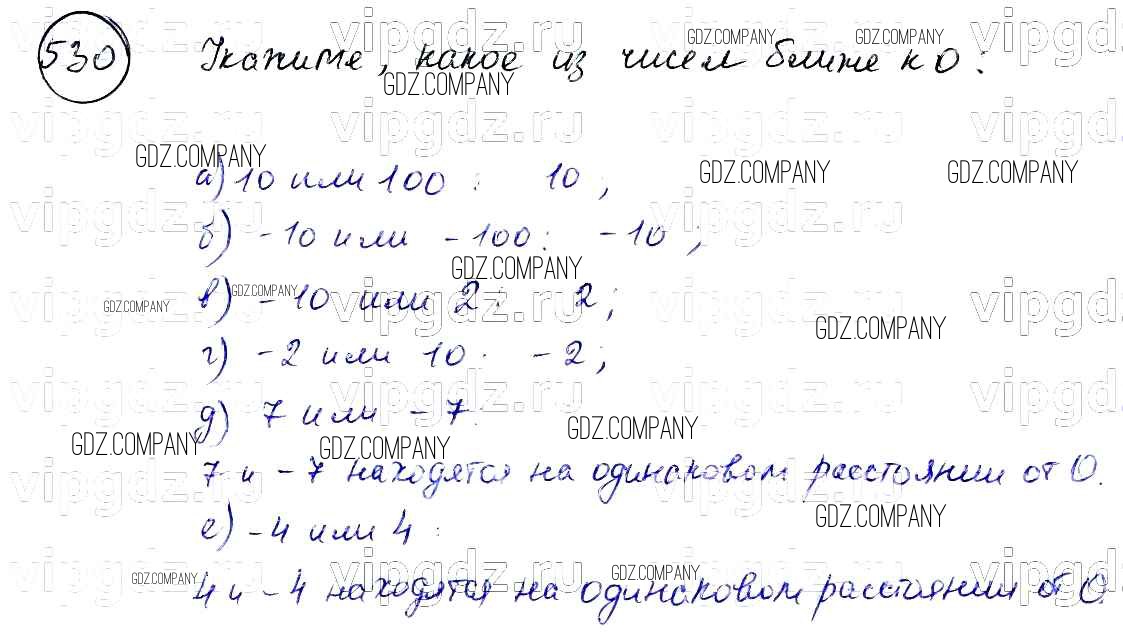 530 Укажите, какое из чисел ближе к 0:
а) 10 или 100 : 10 ;
б) -10 или -100 : -10 ;
в) -10 или 2 : 2 ;
г) -2 или 10 : -2 ;
д) 7 или -7 :
7 и -7 находятся на одинаковом расстоянии от 0.
е) -4 или 4 :
4 и -4 находятся на одинаковом расстоянии от 0.
vipgdz.ru
GDZ.COMPANY